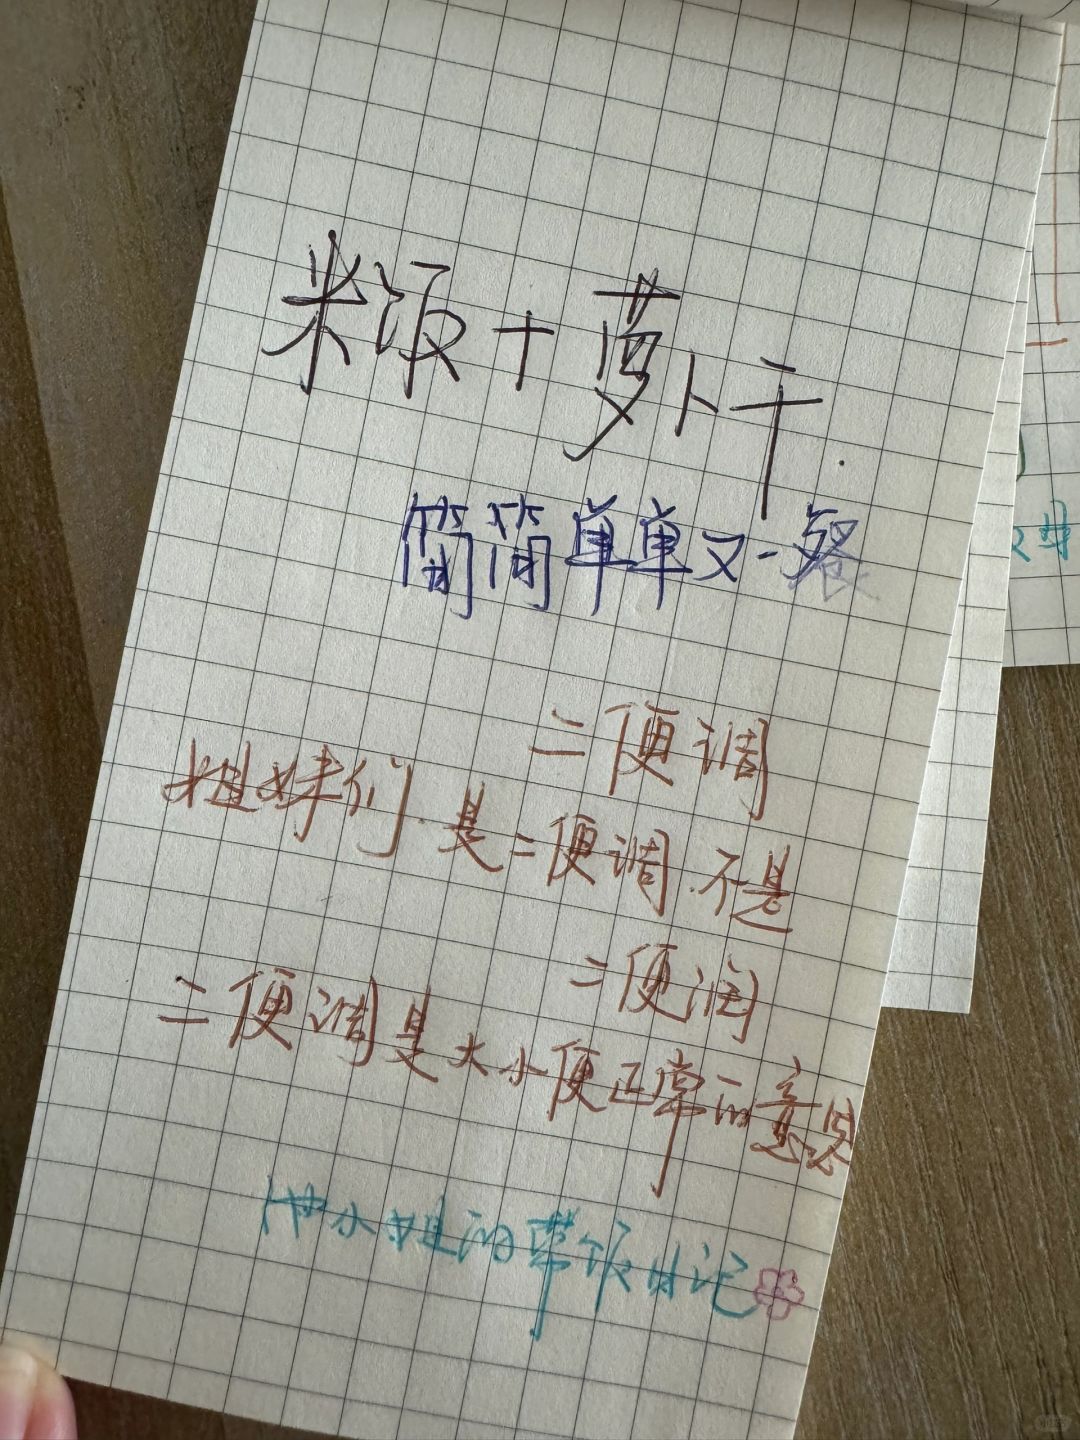 米饭+萝卜干.
简简单单又一餐
二便调
姐妹们.是二便调.不是
二便润
二便调是大小便正常的意思
小姐的带饭日记